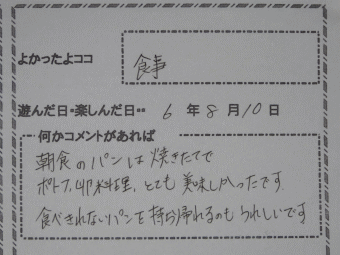 よかったよココ
食事
遊んだ日・楽しんだ日・・ 6 年 8 月 10 日
何かコメントがあれば
朝食のパンは焼きたてで
ポトフ、卵料理、とても美味しかったです
食べきれないパンを持ち帰れるのもうれしいです